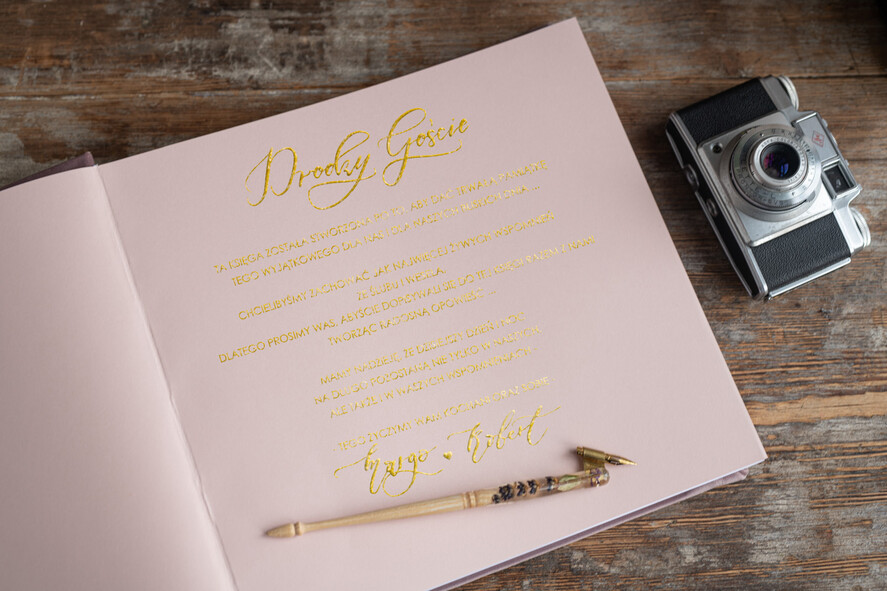 Drodzy Goście
TA KSIĘGA ZOSTAŁA STWORZONA PO TO, ABY BYĆ TRWAŁĄ PAMIĄTKĄ
TEGO WYJĄTKOWEGO DLA NAS I DLA WASZYCH BLISKICH DNIA ...
CHCIELIBYŚMY ZACHOWAĆ JAK NAJWIĘCEJ ŻYWYCH WSPOMNIEŃ
ZE ŚLUBU I WESELA.
DLATEGO PROSIMY WAS, ABYŚCIE DOPISYWALI SIĘ DO TEJ KSIĘGI RAZEM Z NAMI
TWORZĄC RADOSNĄ OPOWIEŚĆ ...
MAMY NADZIEJĘ, ŻE DZISIEJSZY DZIEŃ
NA DŁUGO POZOSTANIE NIE TYLKO W NASZYCH
ALE TAKŻE I W WASZYCH WSPOMNIENIACH
TEGO ŻYCZYMY WAM KOCHANI ORAZ SOBIE
Margo Robert